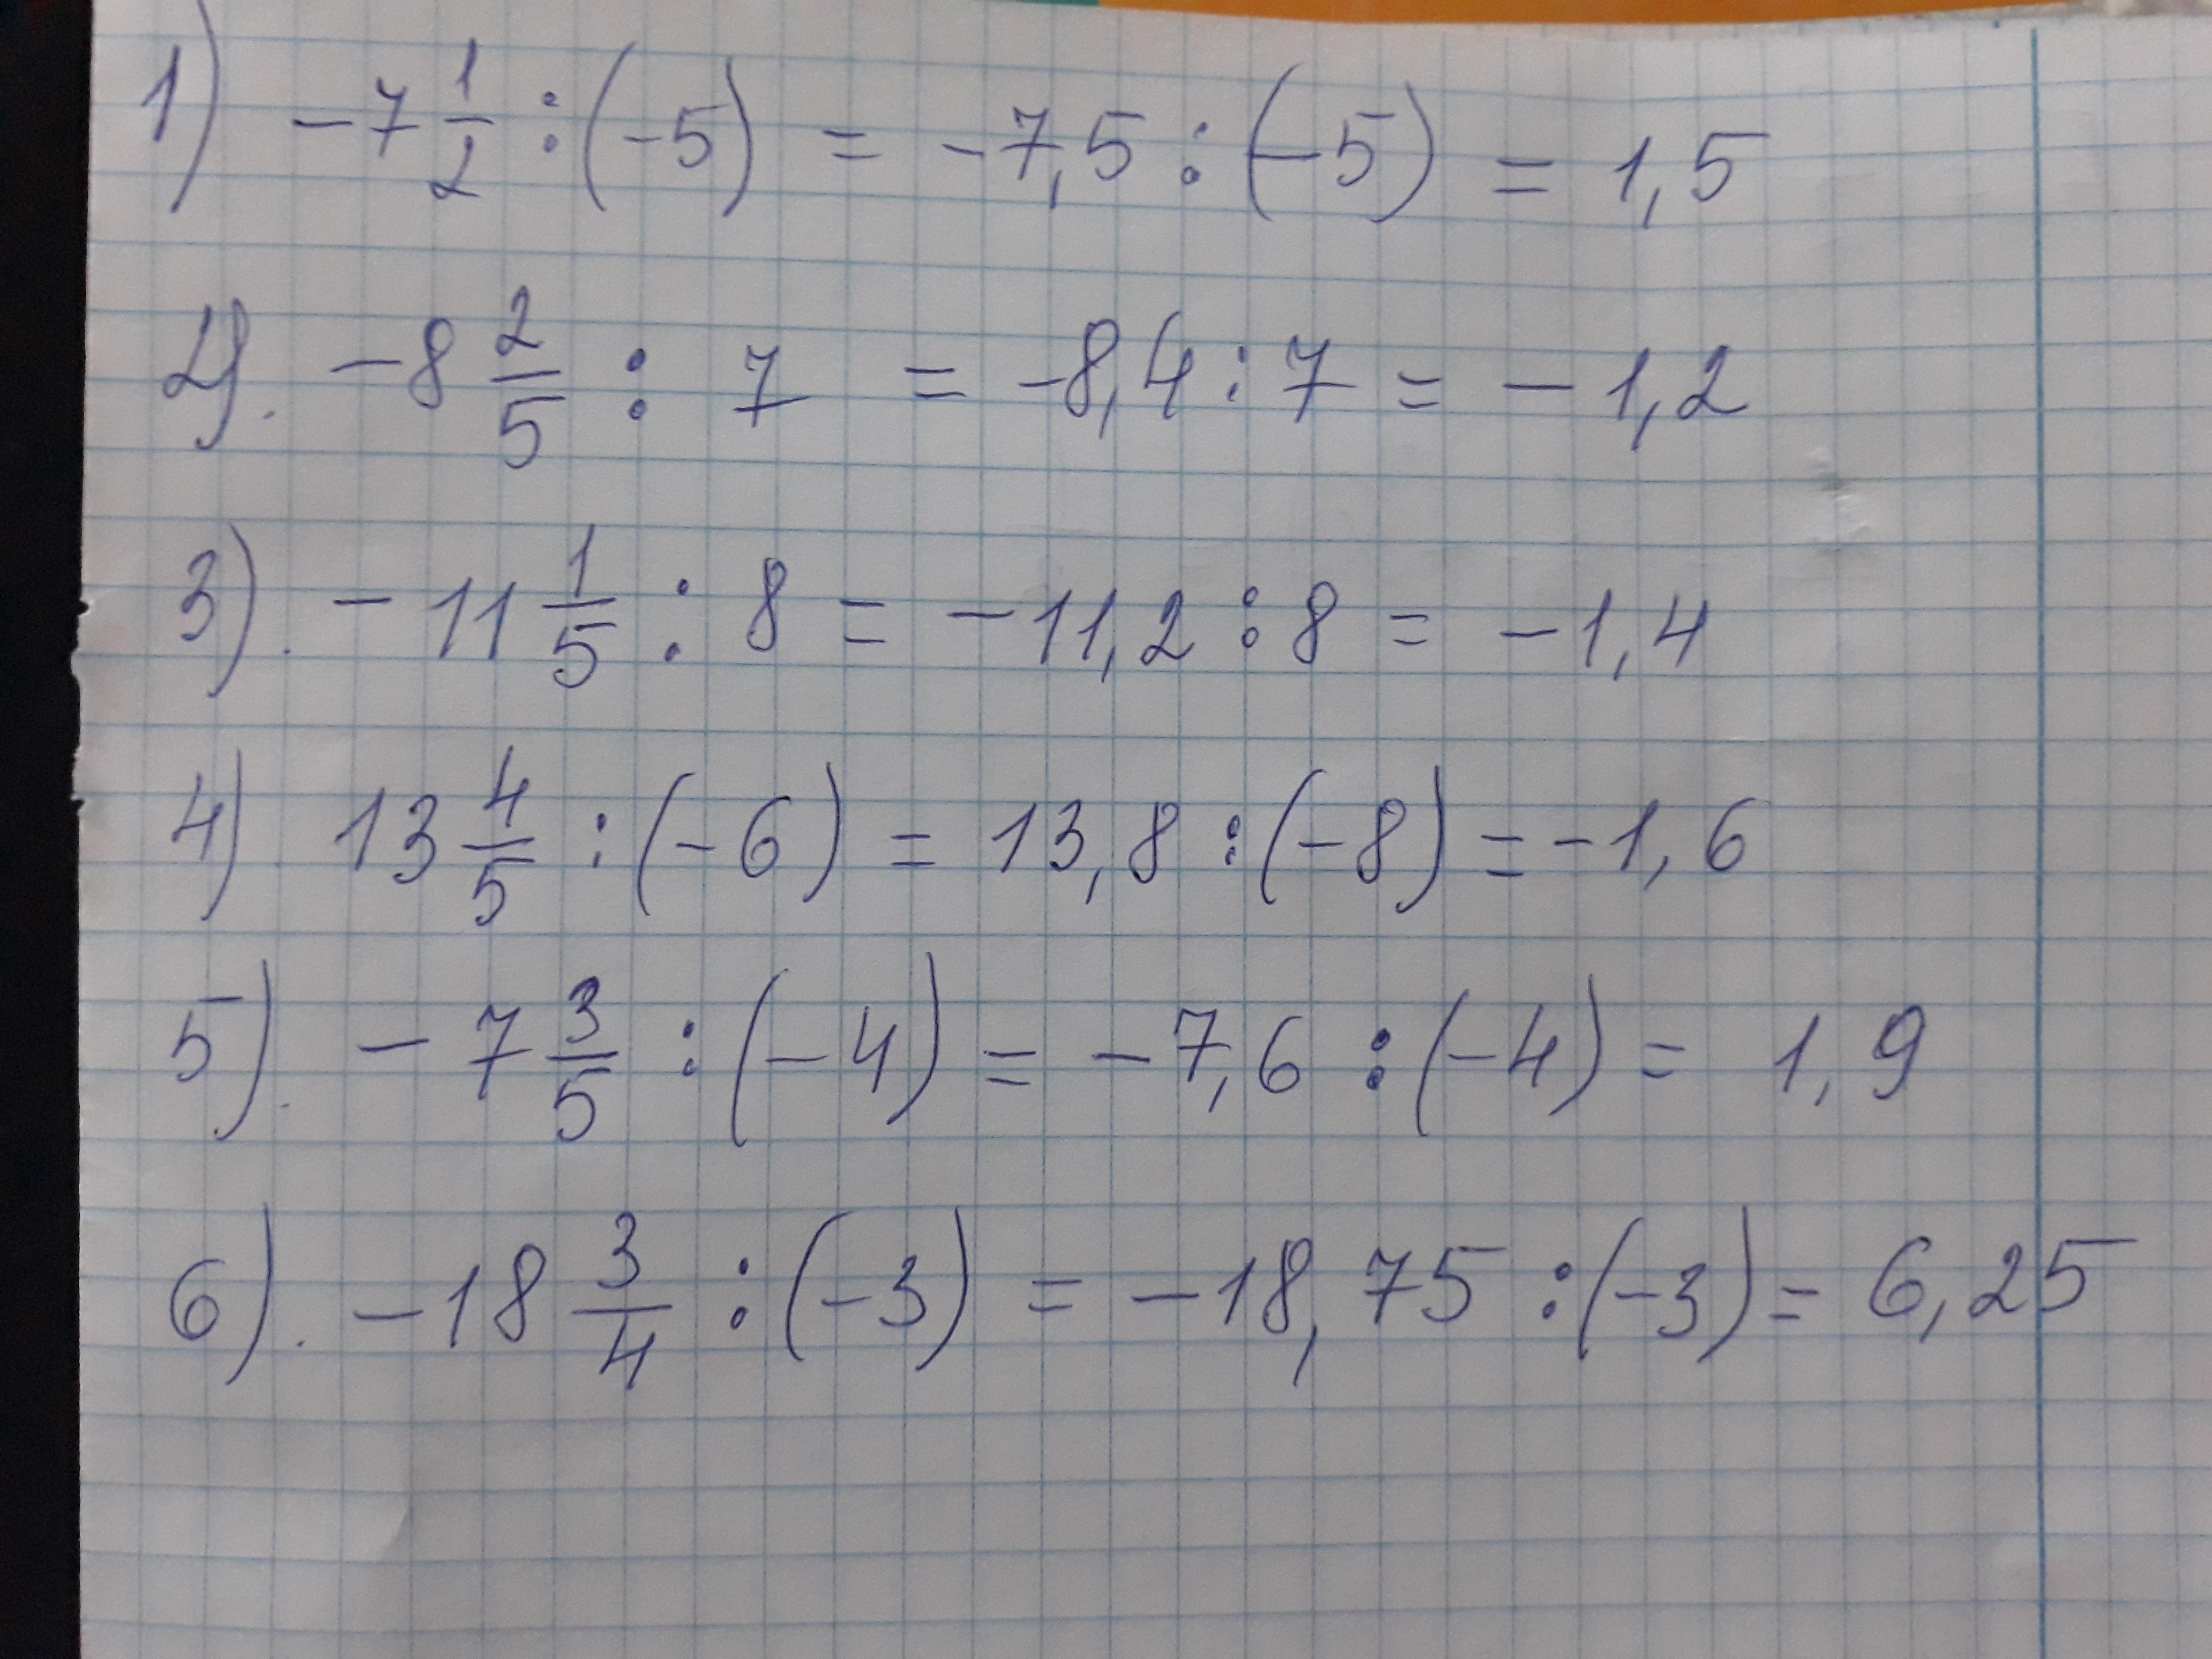 1) -7 1/2 : (-5) = -7,5 : (-5) = 1,5
2). -8 2/5 : 7 = -8,4 : 7 = -1,2
3). -11 1/5 : 8 = -11,2 : 8 = -1,4
4). 13 4/5 : (-6) = 13,8 : (-8) = -1,6
5). -7 3/5 : (-4) = -7,6 : (-4) = 1,9
6). -18 3/4 : (-3) = -18,75 : (-3) = 6,25